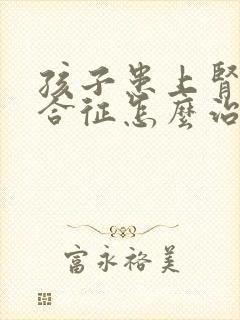 孩子患上肾
合征怎麽治
富永裕美